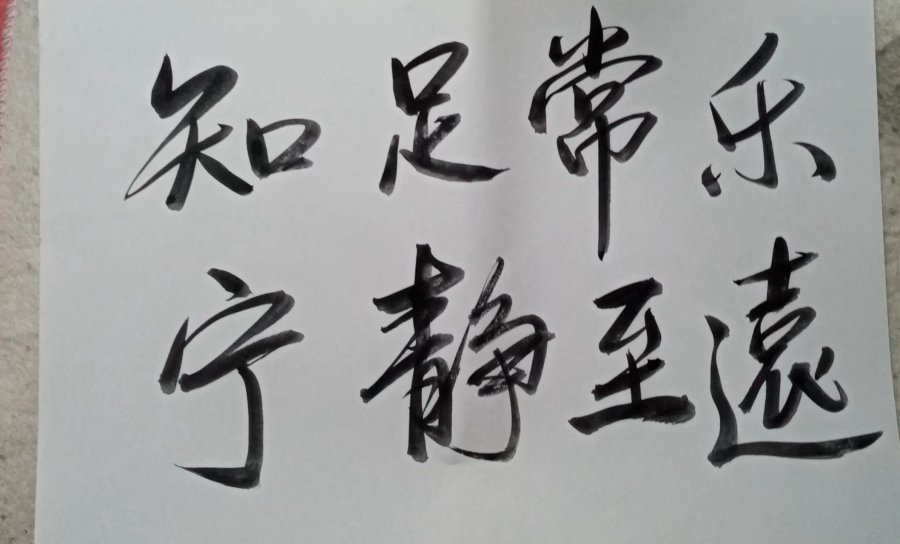 知足常乐
宁静至遠